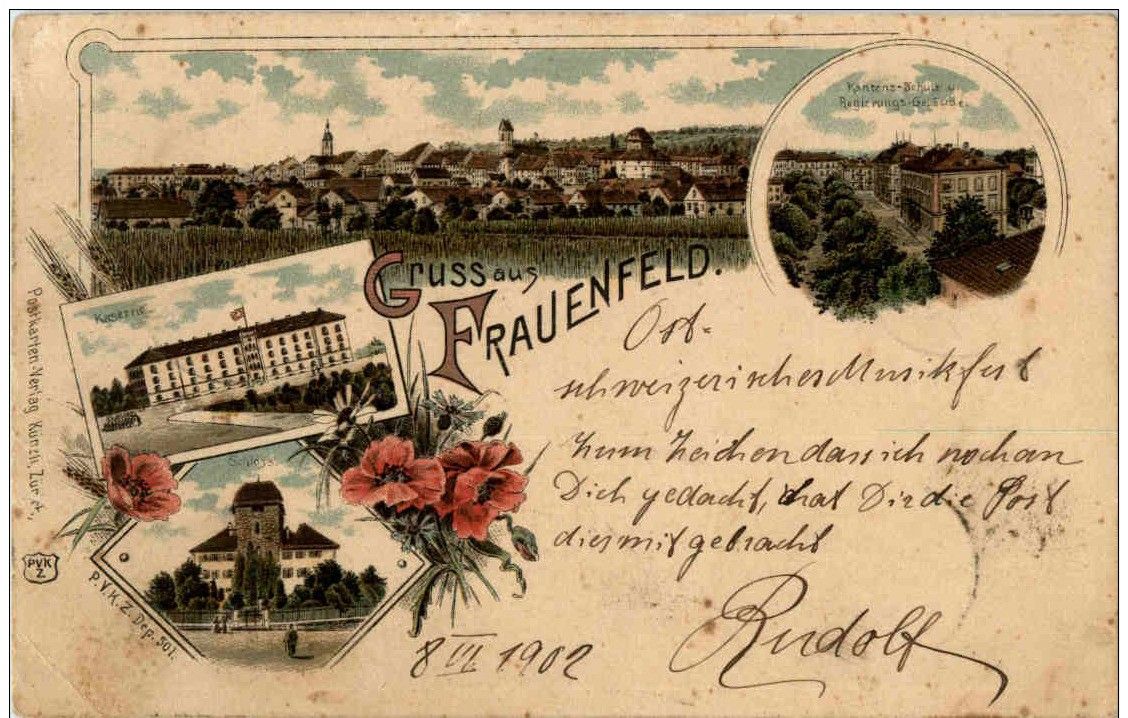 Kantons-Schule u.
Regierungs-Gebäude.
Gruss aus
FRAUENFELD.
Kaserne
Schloss.
Ost-
schweizerisches Musikfest
Zum Zeichen dass ich noch an
Dich gedacht, hat Dir die Post
dies mitgebracht
Rudolf
8 VI 1902
Postkarten-Verlag Künzli, Zürich,
PVK
Z
P.V.K.Z. Dep. 501.